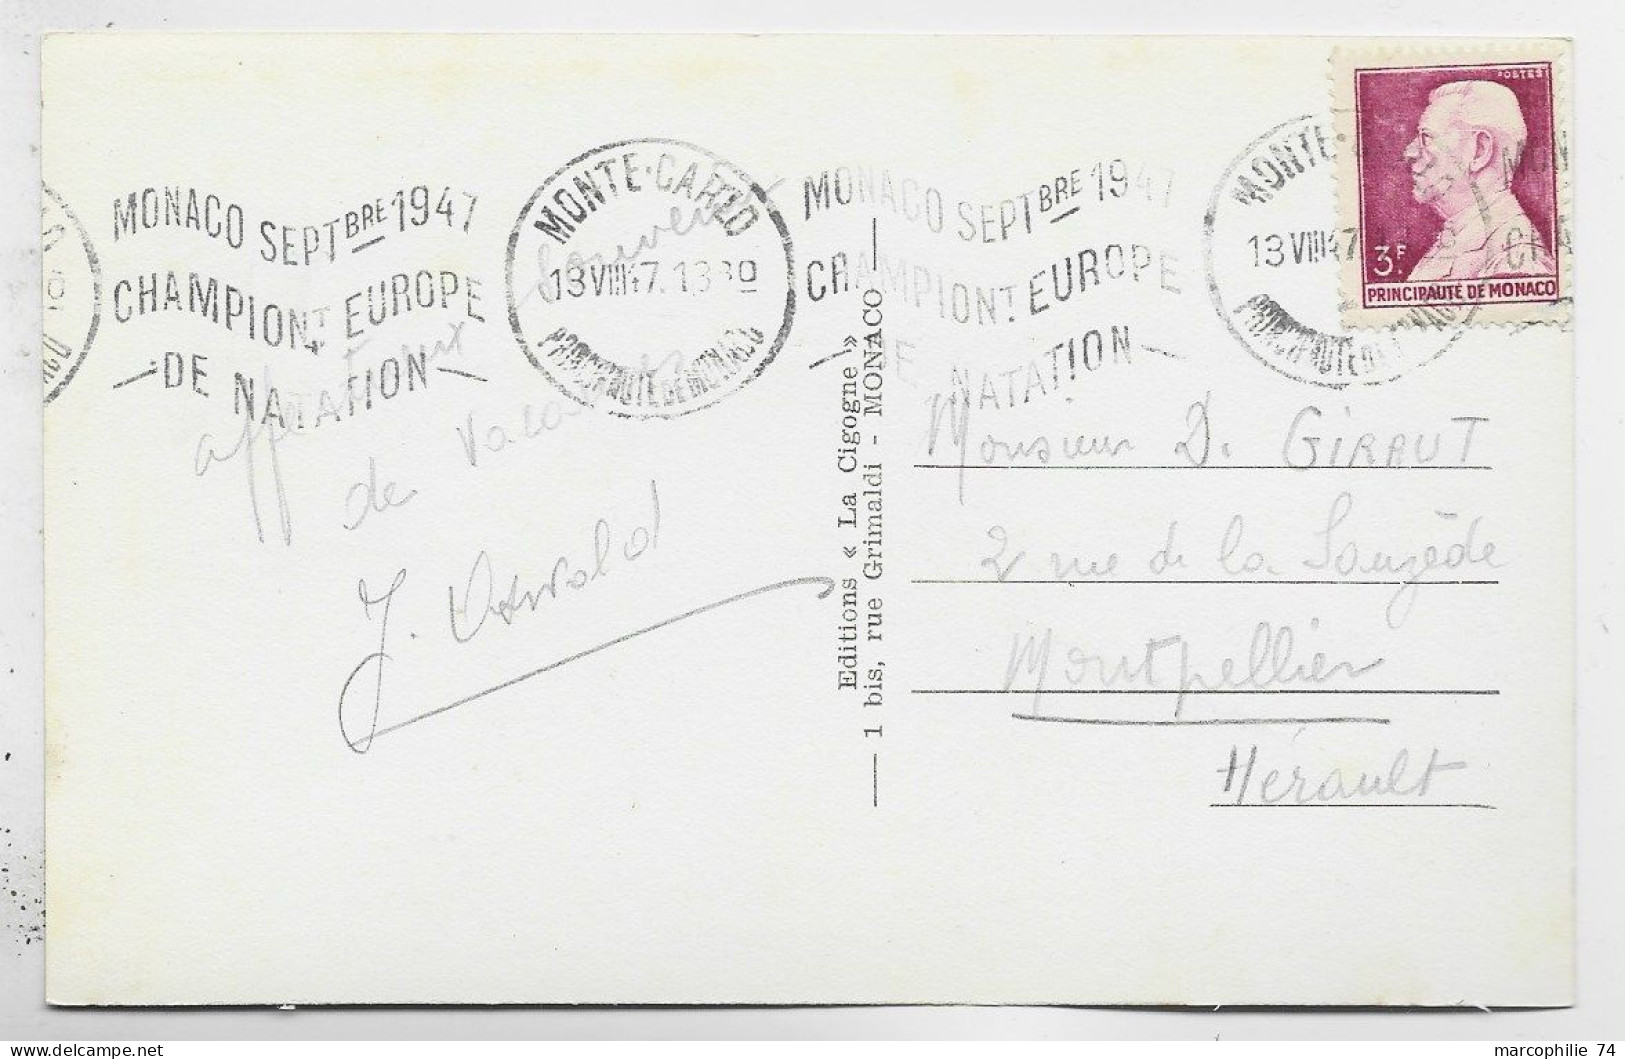 MONACO SEPTBRE 1947
CHAMPIONT EUROPE
DE NATATION
MONTE-CARLO
13 VIII 47. 1330
PRINCIPAUTÉ DE MONACO
MONACO SEPTBRE 1947
CHAMPIONT EUROPE
DE NATATION
MONTE-
13 VIII 47
PRINCIPAUTÉ DE MONACO
MON
CHA
POSTES
3F
PRINCIPAUTÉ DE MONACO
Souvenir
affectueux
de vacances
J. Oswald
Editions « La Cigogne »
1 bis, rue Grimaldi - MONACO
Monsieur D. GIRAUT
2 rue de la Sauzède
Montpellier
Hérault
marcophilie 74